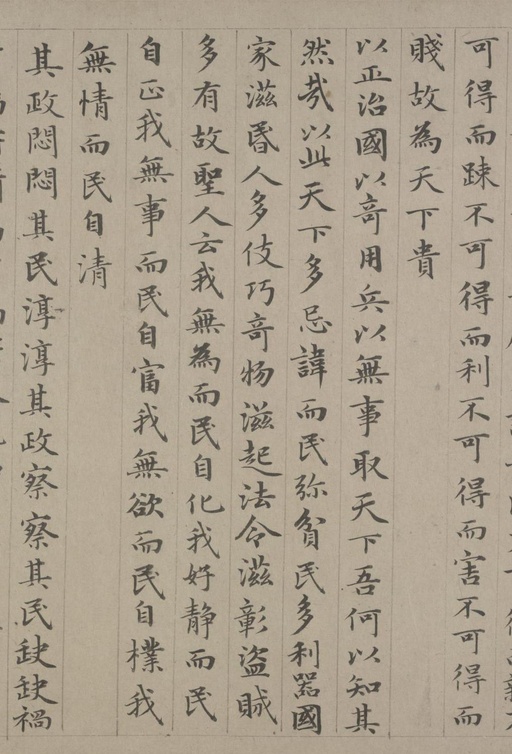 可得而踈不可得而利不可得而害不可得而
賤故為天下貴
以正治國以竒用兵以無事取天下吾何以知其
然㢤以此天下多忌諱而民弥貧民多利器國
家滋昏人多伎巧竒物滋起法令滋彰盜賊
多有故聖人云我無為而民自化我好静而民
自正我無事而民自富我無欲而民自樸我
無情而民自清
其政悶悶其民淳淳其政察察其民𡙇𡙇禍